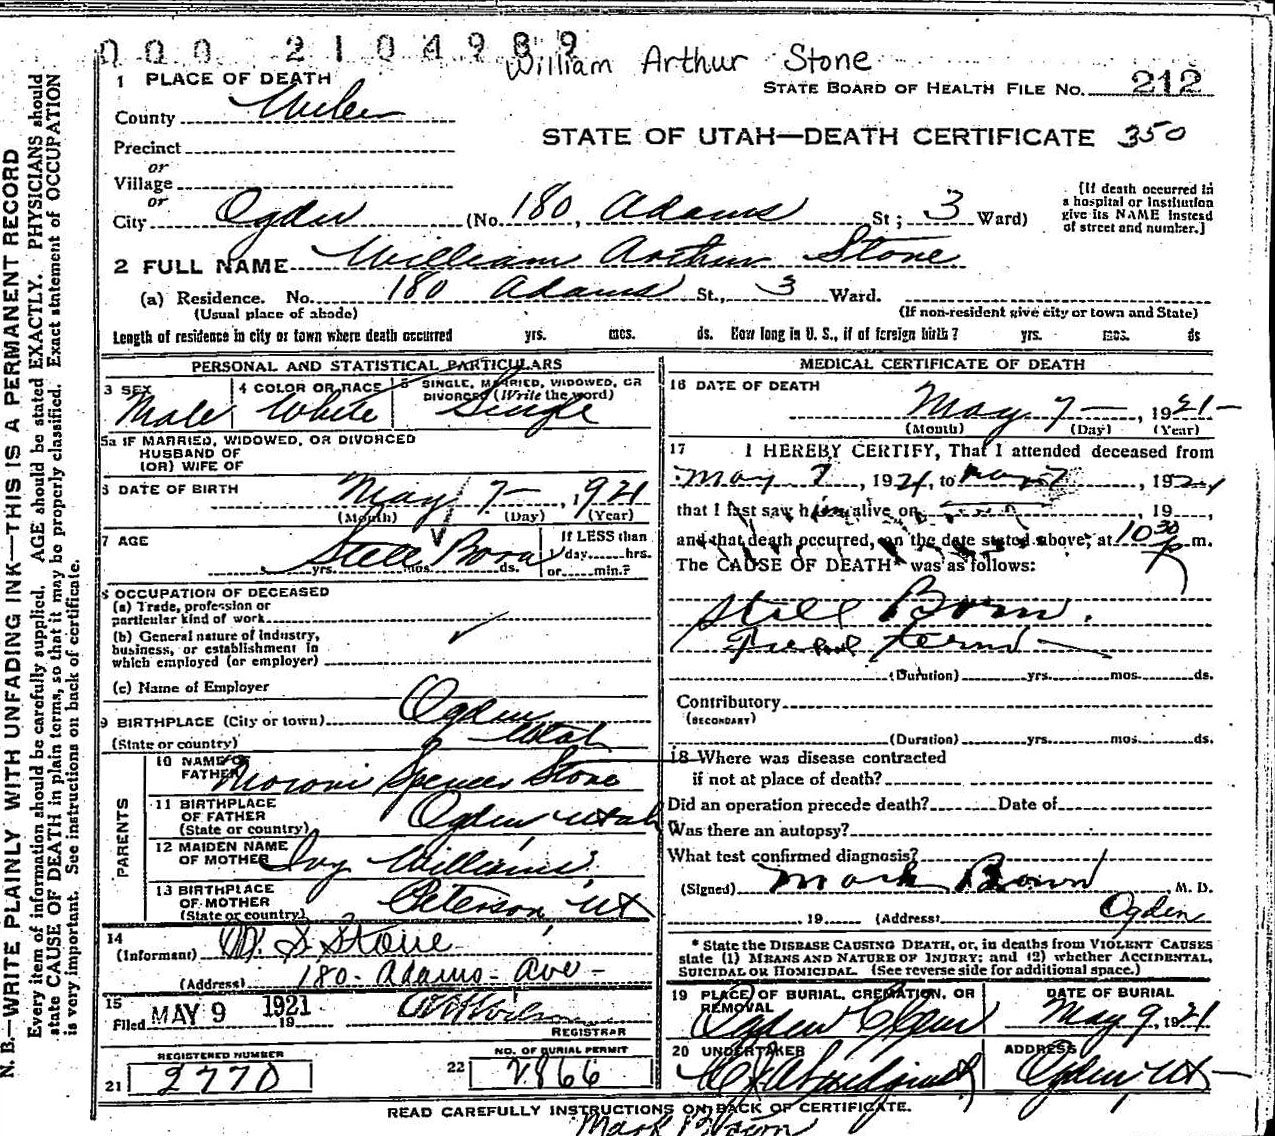 000 2104989
William Arthur Stone
1 PLACE OF DEATH
STATE BOARD OF HEALTH FILE NO. 212
County Weber
STATE OF UTAH—DEATH CERTIFICATE 350
Precinct
or
Village
or
City Ogden (No. 180, Adams St; 3 Ward)
[If death occurred in
a hospital or institution
give its NAME instead
of street and number.]
2 FULL NAME William Arthur Stone
(a) Residence. No. 180 Adams St., 3 Ward.
(Usual place of abode) (If non-resident give city or town and State)
Length of residence in city or town where death occurred yrs. mos. ds. How long in U. S., if of foreign birth? yrs. mos. ds
PERSONAL AND STATISTICAL PARTICULARS
3 SEX Male
4 COLOR OR RACE White
5 SINGLE, MARRIED, WIDOWED, OR
DIVORCED (Write the word)
Single
5a IF MARRIED, WIDOWED, OR DIVORCED
HUSBAND OF
(OR) WIFE OF
6 DATE OF BIRTH May 7—, 1921
(Month) (Day) (Year)
7 AGE Still Born
yrs. mos. ds.
If LESS than
1 day hrs.
or min.?
8 OCCUPATION OF DECEASED
(a) Trade, profession or
particular kind of work
(b) General nature of industry,
business, or establishment in
which employed (or employer)
(c) Name of Employer
9 BIRTHPLACE (City or town) Ogden
(State or country) Utah
PARENTS
10 NAME OF
FATHER Moroni Spencer Stone
11 BIRTHPLACE
OF FATHER
(State or country) Ogden Utah
12 MAIDEN NAME
OF MOTHER Ivy Williams
13 BIRTHPLACE
OF MOTHER
(State or country) Peterson, Ut
14
(Informant) M. S. Stone
(Address) 180 - Adams - Ave -
15
Filed MAY 9 1921
19
REGISTRAR
REGISTERED NUMBER
21 2770
NO. OF BURIAL PERMIT
22 2866
MEDICAL CERTIFICATE OF DEATH
16 DATE OF DEATH
May 7—, 1921—
(Month) (Day) (Year)
17 I HEREBY CERTIFY, That I attended deceased from
May 7, 1921, to May 7, 1921
that I last saw h alive on , 19 ,
and that death occurred, on the date stated above, at 10 30 p m.
The CAUSE OF DEATH* was as follows:
Still Born.
term—
(Duration) yrs. mos. ds.
Contributory
(SECONDARY)
(Duration) yrs. mos. ds.
18 Where was disease contracted
if not at place of death?
Did an operation precede death? Date of
Was there an autopsy?
What test confirmed diagnosis?
(Signed) Mark Brown, M. D.
, 19 (Address) Ogden
* State the DISEASE CAUSING DEATH, or, in deaths from VIOLENT CAUSES
state (1) MEANS AND NATURE OF INJURY; and (2) whether ACCIDENTAL,
SUICIDAL OR HOMICIDAL. (See reverse side for additional space.)
19 PLACE OF BURIAL, CREMATION, OR
REMOVAL
Ogden
DATE OF BURIAL
May 9, 1921
20 UNDERTAKER
ADDRESS
Ogden, Ut—
READ CAREFULLY INSTRUCTIONS ON BACK OF CERTIFICATE.
Mark Brown
N. B.—WRITE PLAINLY WITH UNFADING INK—THIS IS A PERMANENT RECORD
Every item of information should be carefully supplied. AGE should be stated EXACTLY. PHYSICIANS should
state CAUSE OF DEATH in plain terms, so that it may be properly classified. Exact statement of OCCUPATION
is very important. See instructions on back of certificate.